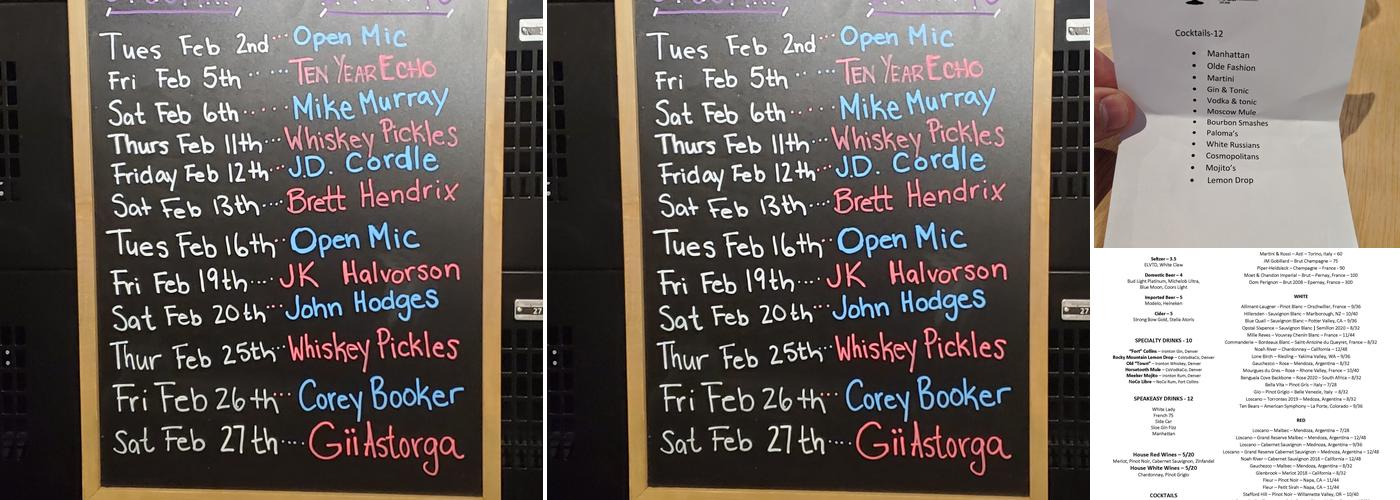 Tues Feb 2nd... Open Mic
Fri Feb 5th ..... Ten Year Echo
Sat Feb 6th..... Mike Murray
Thurs Feb 11th... Whiskey Pickles
Friday Feb 12th... J.D. Cordle
Sat Feb 13th.... Brett Hendrix
Tues Feb 16th... Open Mic
Fri Feb 19th... JK Halvorson
Sat Feb 20th... John Hodges
Thur Feb 25th... Whiskey Pickles
Fri Feb 26th... Corey Booker
Sat Feb 27th.... Gii Astorga
27
Tues Feb 2nd... Open Mic
Fri Feb 5th ..... Ten Year Echo
Sat Feb 6th..... Mike Murray
Thurs Feb 11th... Whiskey Pickles
Friday Feb 12th... J.D. Cordle
Sat Feb 13th.... Brett Hendrix
Tues Feb 16th... Open Mic
Fri Feb 19th... JK Halvorson
Sat Feb 20th... John Hodges
Thur Feb 25th... Whiskey Pickles
Fri Feb 26th... Corey Booker
Sat Feb 27th.... Gii Astorga
27
Cocktails-12
• Manhattan
• Olde Fashion
• Martini
• Gin & Tonic
• Vodka & tonic
• Moscow Mule
• Bourbon Smashes
• Paloma's
• White Russians
• Cosmopolitans
• Mojito's
• Lemon Drop
Seltzer – 3.5
ELVTD, White Claw
Domestic Beer – 4
Bud Light Platinum, Michelob Ultra,
Blue Moon, Coors Light
Imported Beer – 5
Modelo, Heineken
Cider – 5
Strong Bow Gold, Stella Atoris
SPECIALTY DRINKS - 10
"Fort" Collins – Ironton Gin, Denver
Rocky Mountain Lemon Drop – CoVodkaCo, Denver
Old "Town" – Ironton Whiskey, Denver
Horsetooth Mule – CoVodkaCo, Denver
Meeker Mojito – Ironton Rum, Denver
NoCo Libre – NoCo Rum, Fort Collins
SPEAKEASY DRINKS - 12
White Lady
French 75
Side Car
Sloe Gin Fizz
Manhattan
House Red Wines – 5/20
Merlot, Pinot Noir, Cabernet Sauvignon, Zinfandel
House White Wines – 5/20
Chardonnay, Pinot Grigio
COCKTAILS
Martini & Rossi – Asti – Torino, Italy – 60
JM Gobillard – Brut Champagne – 75
Piper-Heidsieck – Champagne – France - 90
Moet & Chandon Imperial – Brut – Pernay, France – 100
Dom Perignon – Brut 2008 – Epernay, France – 300
WHITE
Allimant-Laugner - Pinot Blanc – Orschwiller, France – 9/36
Hillersden - Sauvignon Blanc – Marlborough, NZ – 10/40
Blue Quail – Sauvignon Blanc – Potter Valley, CA – 9/36
Opstal Sixpence – Sauvignon Blanc | Semillon 2020 – 8/32
Mille Reves – Vouvray Chenin Blanc – France – 11/44
Commanderie – Bordeaux Blanc – Saint-Antoine du Queyret, France – 8/32
Noah River – Chardonnay – California – 12/48
Lone Birch – Riesling – Yakima Valley, WA – 9/36
Gauchezco – Rose – Mendoza, Argentina – 8/32
Mourgues du Gres – Rose – Rhone Valley, France – 10/40
Benguela Cove Backbone – Rose 2020 – South Africa – 8/32
Bella Vita – Pinot Gris – Italy – 7/28
Gio – Pinot Grigio – Belle Venezie, Italy – 8/32
Loscano – Torrontes 2019 – Medoza, Argentina – 8/32
Ten Bears – American Symphony – La Porte, Colorado – 9/36
RED
Loscano – Malbec – Mendoza, Argentina – 7/28
Loscano – Grand Reserve Malbec – Mendoza, Argentina – 12/48
Loscano – Cabernet Sauvignon – Medroza, Argentina – 9/36
Loscano – Grand Reserve Cabernet Sauvignon – Mendoza, Argentina – 12/48
Noah River – Cabernet Sauvignon 2018 – California – 12/48
Gauchezco – Malbec – Mendoza, Argentina – 8/32
Glenbrook – Merlot 2018 – California – 8/32
Fleur – Pinot Noir – Napa, CA – 11/44
Fleur – Petit Sirah – Napa, CA – 11/44
Stafford Hill – Pinot Noir – Willamette Valley, OR – 10/40